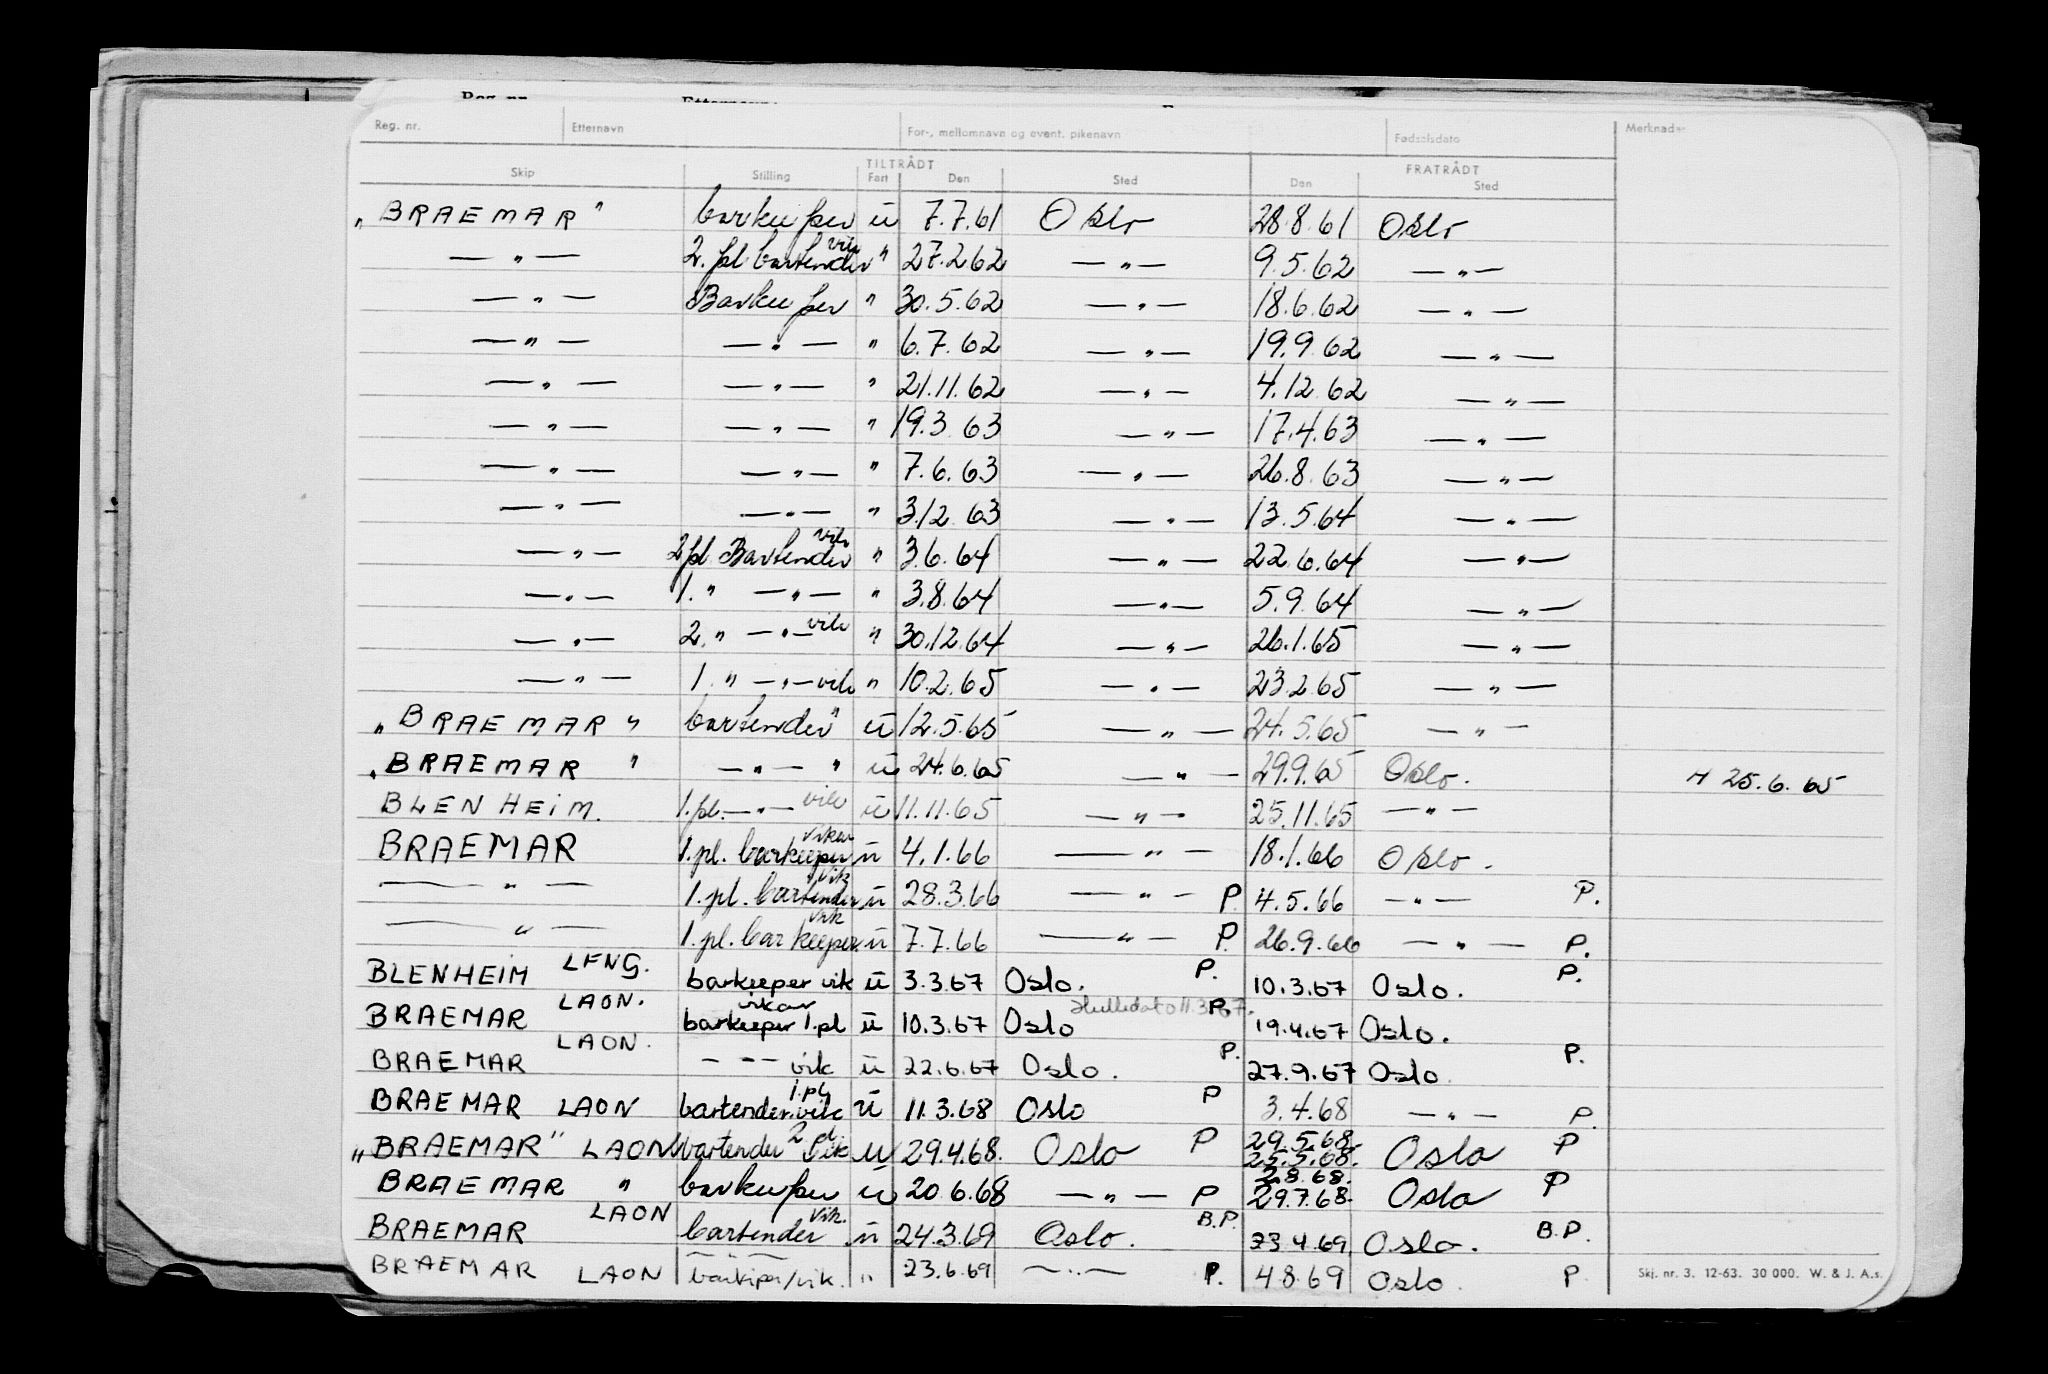 Reg. nr. Etternavn For-, mellomnavn og event. pikenavn Fødselsdato Merknader
TILTRÅDT FRATRÅDT
Skip Stilling Fart Den Sted Den Sted
„BRAEMAR" barkeeper ū 7.7.61 Oslo 28.8.61 Oslo
—"— 2. pl bartender vik " 27.2.62 —"— 9.5.62 —"—
—"— Barkeeper " 30.5.62 —"— 18.6.62 —"—
—"— —"— " 6.7.62 —"— 19.9.62 —"—
—"— —"— " 21.11.62 —"— 4.12.62 —"—
—"— —"— " 19.3.63 —"— 17.4.63 —"—
—"— —"— " 7.6.63 —"— 26.8.63 —"—
—"— —"— " 3.12.63 —"— 13.5.64 —"—
—"— 2 pl Bartender vik " 3.6.64 —"— 22.6.64 —"—
—"— 1. " —"— " 3.8.64 —"— 5.9.64 —"—
—"— 2. " —"— vik " 30.12.64 —"— 26.1.65 —"—
—"— 1. " —"— vik " 10.2.65 —"— 23.2.65 —"—
„BRAEMAR" bartender " ū 12.5.65 —"— 24.5.65 —"—
„BRAEMAR " —"— " ū 24.6.65 —"— 29.9.65 Oslo. H 25.6.65
BLENHEIM. 1.pl. —"— vik ū 11.11.65 —"— 25.11.65 —"—
BRAEMAR 1.pl. barkeeper vikar ū 4.1.66 —"— 18.1.66 Oslo.
—"— 1.pl. bartender vik ū 28.3.66 —"— P. 4.5.66 —"— P.
—"— 1.pl. barkeeper vik ū 7.7.66 —"— P. 26.9.66 —"— P.
BLENHEIM LFNG. barkeeper vik ū 3.3.67 Oslo. P. 10.3.67 Oslo. P.
BRAEMAR LAON. barkeeper 1.pl vikar ū 10.3.67 Oslo Hulledato 11.3.67. P. 19.4.67 Oslo.
BRAEMAR LAON. — " — vik ū 22.6.67 Oslo. P. 27.9.67 Oslo. P.
BRAEMAR LAON bartender.vik 1.pl ū 11.3.68 Oslo P 3.4.68 —"— P.
„BRAEMAR" LAON bartender 2 pl vik ū 29.4.68. Oslo P 29.5.68. 25.5.68. Oslo P
BRAEMAR " barkeeper ū 20.6.68 —"— P 2.8.68. 29.7.68. Oslo P
BRAEMAR LAON bartender vik. ū 24.3.69 Oslo. B.P. 23.4.69 Oslo. B.P.
BRAEMAR LAON —"— barkiper/vik. " 23.6.69 —"— P. 4.8.69 Oslo. P.
Skj. nr. 3. 12-63. 30 000. W. & J. A.s.